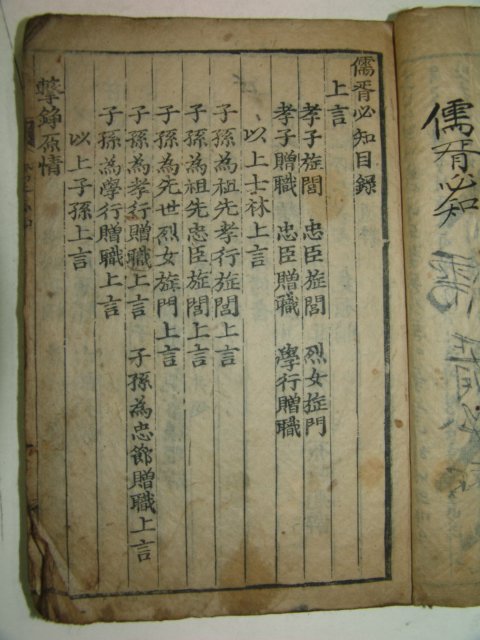 儒胥必知
儒胥必知目録
上言
孝子㫌閭 忠臣㫌閭 烈女㫌門
孝子贈職 忠臣贈職 學行贈職
以上士林上言
子孫為祖先孝行㫌閭上言
子孫為祖先忠臣㫌閭上言
子孫為先世烈女㫌門上言
子孫為孝行贈職上言 子孫為忠節贈職上言
子孫為學行贈職上言
以上子孫上言
擊錚原情